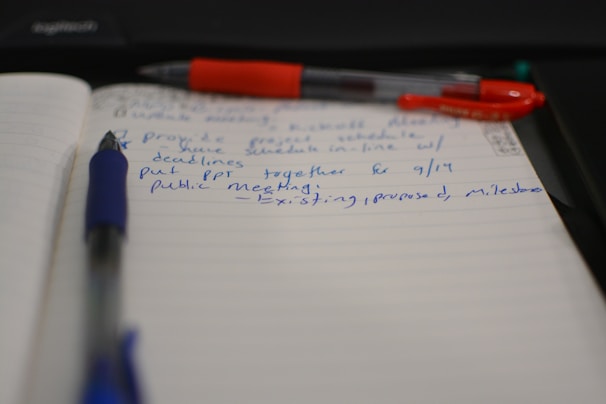 logitech
update meeting
- Kickoff Meeting
provide project schedule
- have schedule in-line w/
deadlines
put ppt together for 9/19
public meeting:
- Existing, proposed, milesto